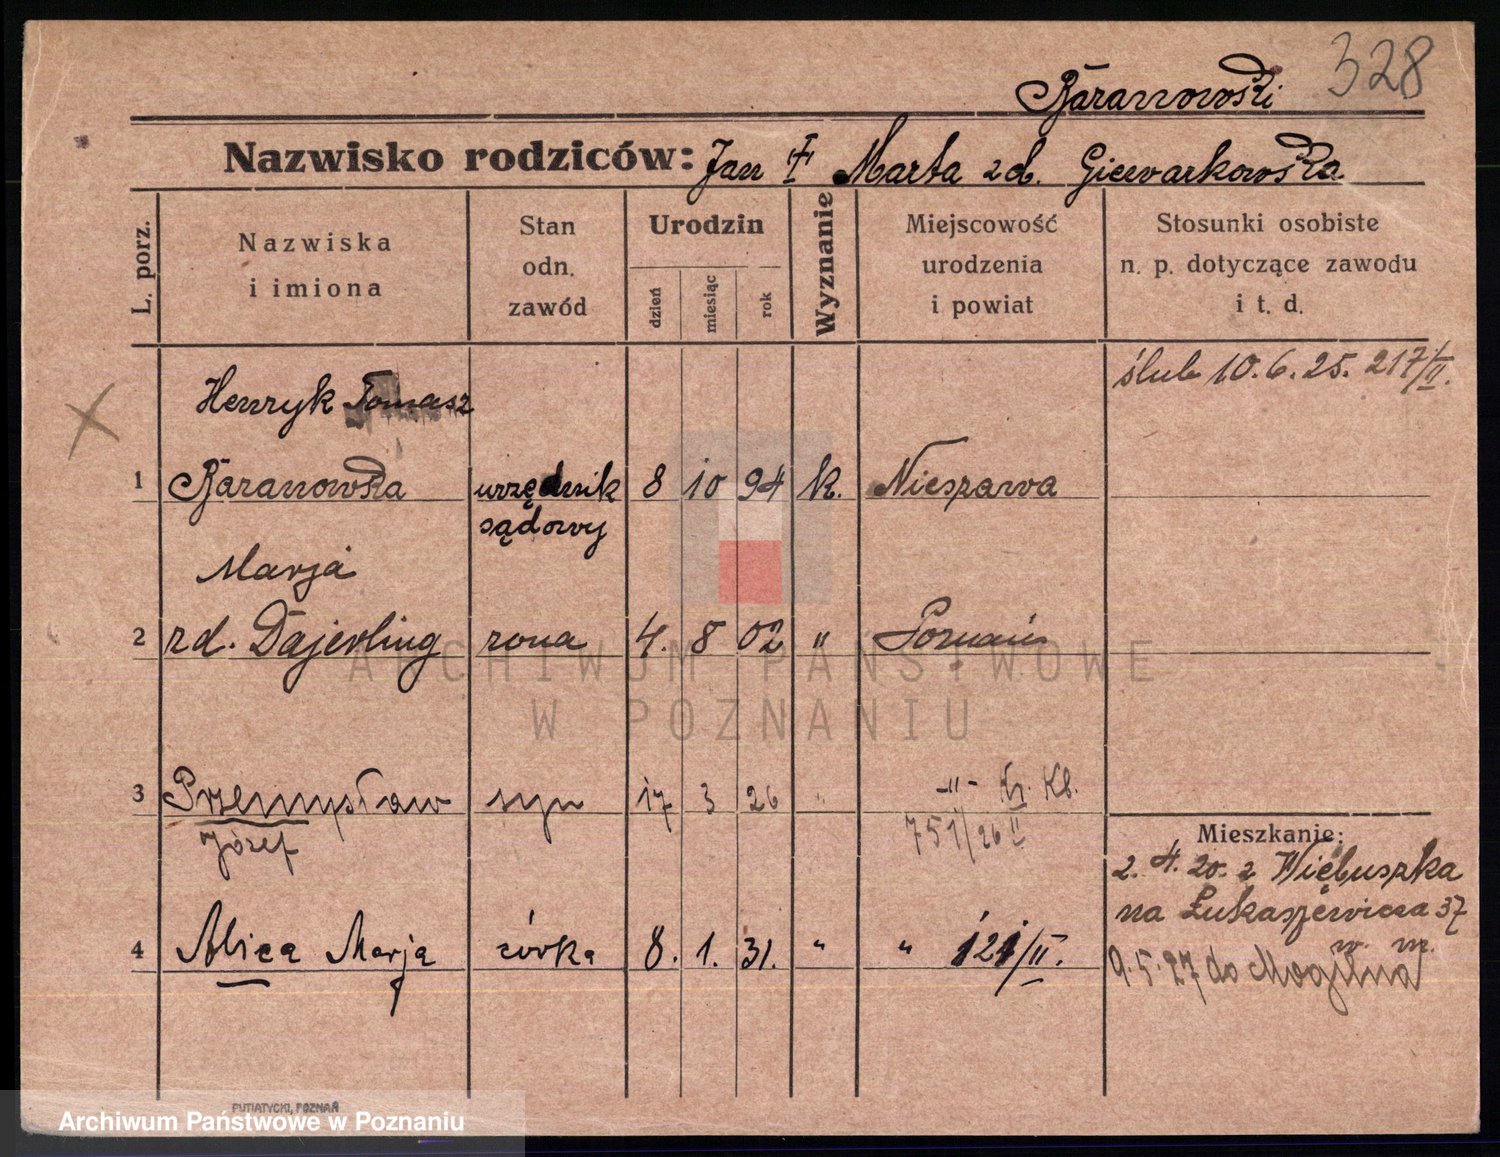 328
Baranowski
Nazwisko rodziców: Jan I Marta zd. Giewarkowska
L. porz.
Nazwiska i imiona
Stan odn. zawód
Urodzin
dzień
miesiąc
rok
Wyznanie
Miejscowość urodzenia i powiat
Stosunki osobiste n. p. dotyczące zawodu i t. d.
ślub 10.6.25. 217/II.
Henryk Tomasz
1 Baranowska urzędnik 8 10 94 k. Nieszawa
sądowy
Marja
2 zd. Dajerling żona 4. 8 02 " Poznań
3 Przemysław syn 17 3 26 " -"- Kr. Kb.
Józef 751/26 II
Mieszkanie:
2. 4. 20. z Więbuszka
na Łukaszewicza 37
w. m.
9.5.27 do Mogilna
4 Alica Marja córka 8. 1. 31. " " 121/II.
PUTIATYCKI, POZNAŃ
ARCHIWUM PAŃSTWOWE
W POZNANIU
Archiwum Państwowe w Poznaniu